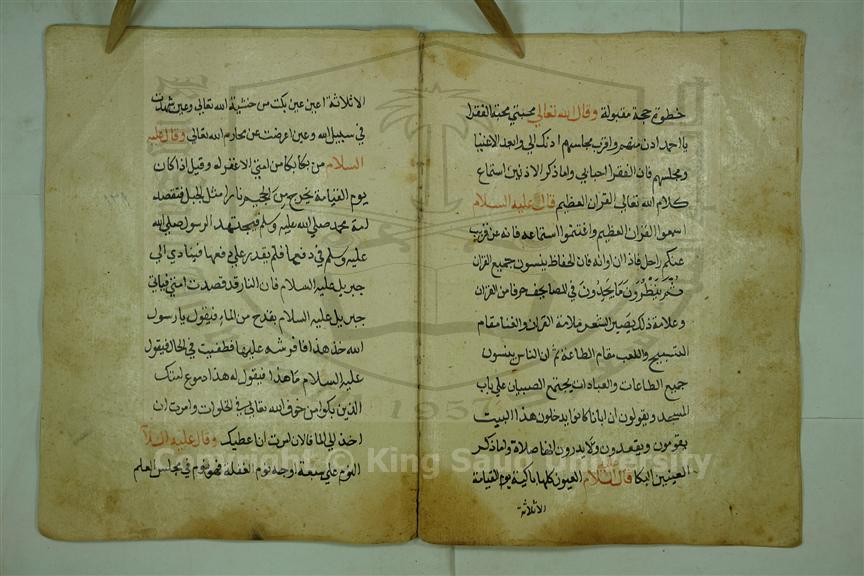 خطوة حجة مقبولة وقال الله تعالى محبتي محبة الفقرا
يا احمد ادن منهم واقرب مجالسهم ادنك الي وابعد الاغنيا
ومجلسهم فان الفقرا احبابي واما ذكر الاذنين استماع
كلام الله تعالى القران العظيم قال عليه السلام
اسمعوا القران العظيم واغتنموا استماعه فانه عن قريب
عنكم راحل فاذا ان اوانه فان الحفاظ ينسون جميع القران
ثم ينظرون ما يجدون في المصاحف حرفا من القران
وعلامة ذلك يصير الشعر مقام القران والغنا مقام
التسبيح واللعب مقام الطاعة ثم ان الناس ينسون
جميع الطاعات والعبادات يجتمع الصبيان علي باب
المسجد ويقولون ان ابانا كانوا يدخلون هذا البيت
يقومون ويقعدون ولا يدرون انها صلاة واما ذكر
العينين البكا قال عليه السلام العيون كلها باكية يوم القيامة
الاثلاثة
الاثلاثة اعين عين بكت من خشية الله تعالى وعين سهرت
في سبيل الله وعين اعرضت عن محارم الله تعالى وقال عليه
السلام من بكا بكا من امتي الا غفر له وقيل اذا كان
يوم القيامة يخرج من الجحيم نار مثل الجبل فتقصد
امة محمد صلي الله عليه وسلم فيجتهد الرسول صلي الله
عليه وسلم في دفعها فلم يقدر علي دفعها فينادي الي
جبريل عليه السلام فان النار قد قصدت امتي فياتي
جبريل عليه السلام بقدح من الماء فيقول يا رسول
الله خذ هذا فافرشه عليها فطفيت في الحال فيقول
عليه السلام ما هذا فيقول له هذا دموع امتك
الذين بكوا من خوف الله تعالى في الخلوات وامرت ان
اخذ الي الما فالان امرت ان اعطيك وقال عليه السلام
النوم علي سبعة اوجه نوم الغفلة فهو نوم في مجلس العلم
1957
© King Saud University